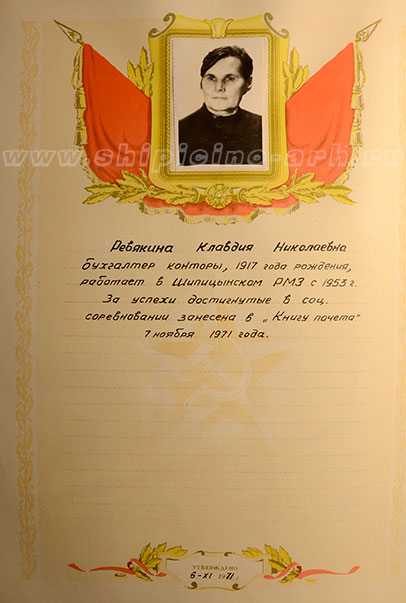 www.shipicino-arh.ru
Ревякина Клавдия Николаевна
бухгалтер конторы, 1917 года рождения,
работает в Шипицынском РМЗ с 1953 г.
За успехи достигнутые в соц.
соревновании занесена в „Книгу почета"
7 ноября 1971 года.
УТВЕРЖДЕНО
6-XI 1971 г.